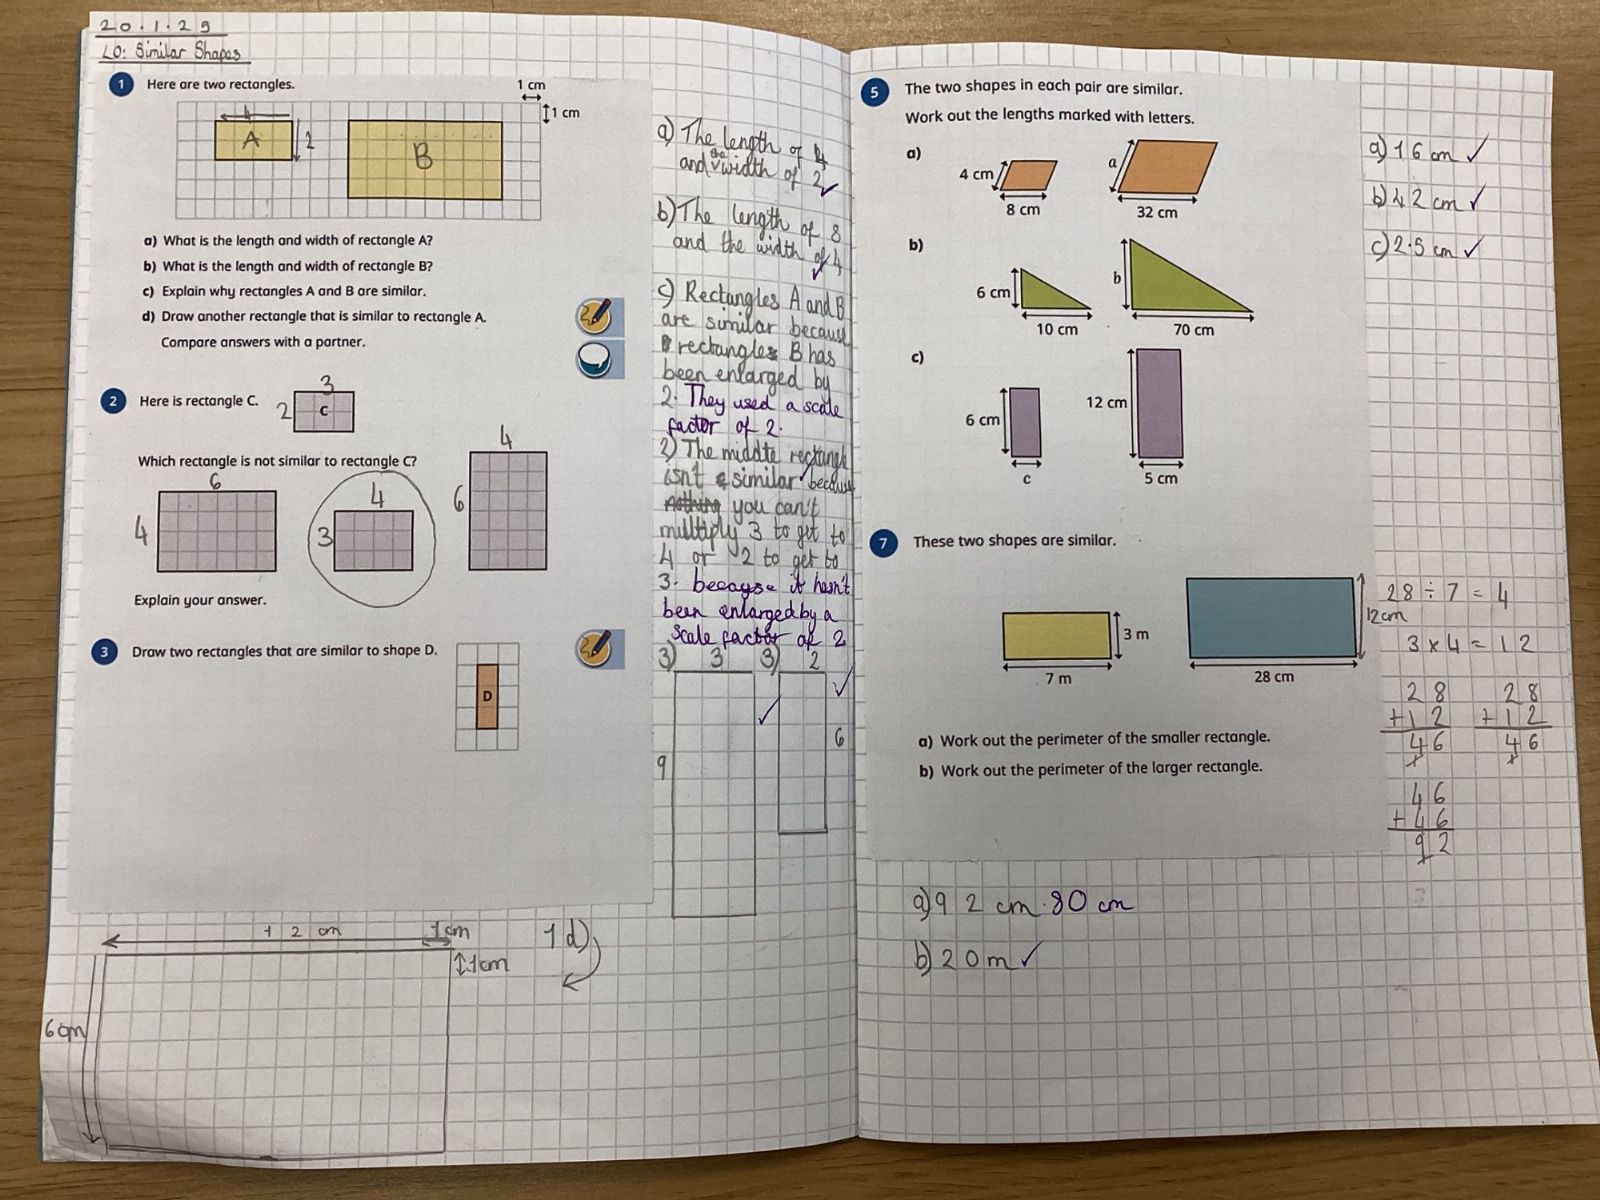 20.1.25
LO: Similar Shapes
1 Here are two rectangles.
1 cm
1 cm
4
A
2
B
a) What is the length and width of rectangle A?
b) What is the length and width of rectangle B?
c) Explain why rectangles A and B are similar.
d) Draw another rectangle that is similar to rectangle A.
Compare answers with a partner.
2 Here is rectangle C.
3
2
C
Which rectangle is not similar to rectangle C?
6
4
4
3
4
6
Explain your answer.
3 Draw two rectangles that are similar to shape D.
D
a) The length of 4
and the width of 2 ✓
b) The length of 8
and the width of 4
✓
c) Rectangles A and B
are similar because
rectangles B has
been enlarged by
2. They used a scale
factor of 2.
2) The middle rectangle
isn't similar ✓ because
you can't
multiply 3 to get to
4 or 2 to get to
3. because it hasn't
been enlarged by a
scale factor of 2
3) 3 3) 2
✓
✓
6
9
12 cm
1cm
1cm
1d)
6cm
5 The two shapes in each pair are similar.
Work out the lengths marked with letters.
a)
4 cm
8 cm
a
32 cm
b)
6 cm
10 cm
b
70 cm
c)
6 cm
c
12 cm
5 cm
a) 16 cm ✓
b) 42 cm ✓
c) 2.5 cm ✓
7 These two shapes are similar.
3 m
7 m
12cm
28 cm
a) Work out the perimeter of the smaller rectangle.
b) Work out the perimeter of the larger rectangle.
28 ÷ 7 = 4
3 x 4 = 12
28 28
+12 +12
46 46
46
+46
92
a) 92 cm. 80 cm
b) 20 m ✓